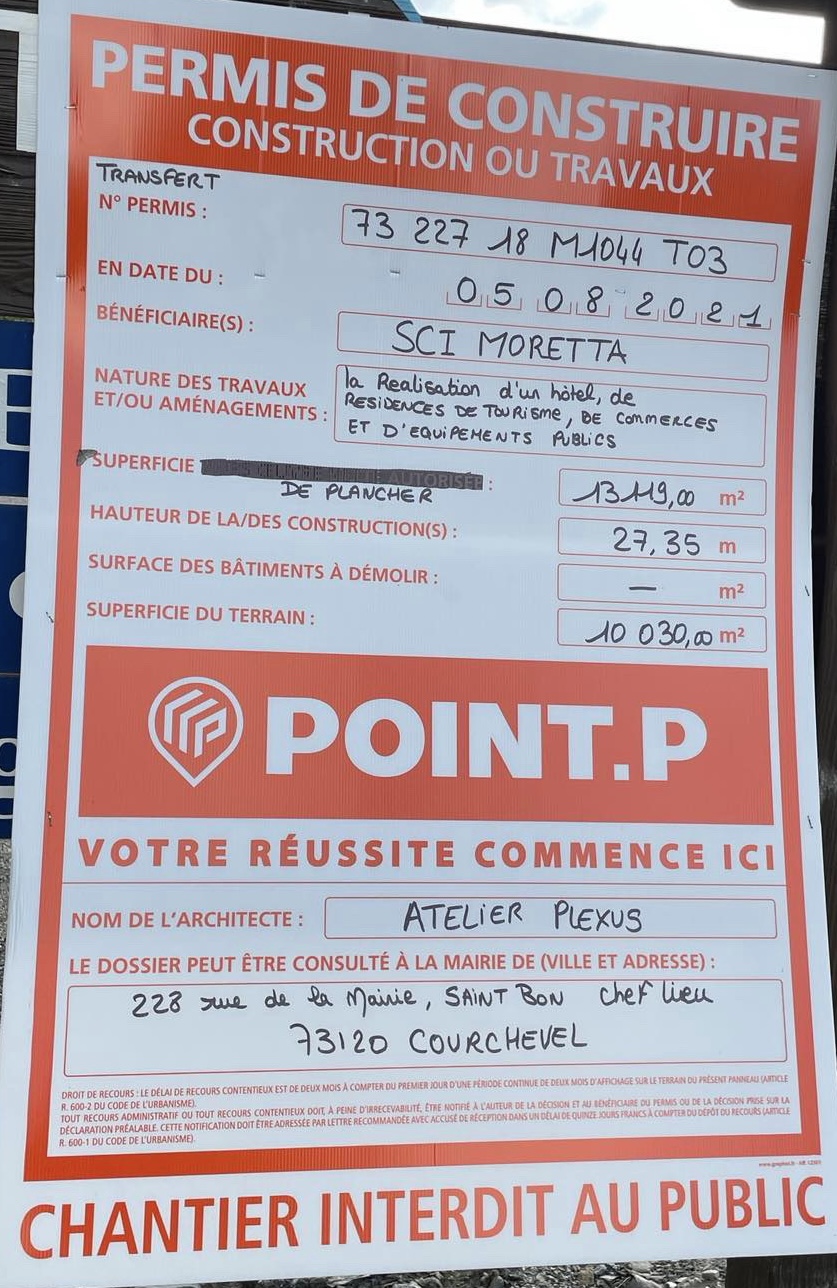 PERMIS DE CONSTRUIRE
CONSTRUCTION OU TRAVAUX
TRANSFERT
N° PERMIS : 73 227 18 M1044 T03
EN DATE DU : 05 08 2021
BÉNÉFICIAIRE(S) : SCI MORETTA
NATURE DES TRAVAUX
ET/OU AMÉNAGEMENTS :
la Realisation d'un hôtel, de
RESIDENCES DE TOURISME, DE COMMERCES
ET D'EQUIPEMENTS PUBLICS
SUPERFICIE AUTORISÉE :
DE PLANCHER 13119,00 m²
HAUTEUR DE LA/DES CONSTRUCTION(S) : 27,35 m
SURFACE DES BÂTIMENTS À DÉMOLIR : — m²
SUPERFICIE DU TERRAIN : 10 030,00 m²
POINT.P
VOTRE RÉUSSITE COMMENCE ICI
NOM DE L'ARCHITECTE : ATELIER PLEXUS
LE DOSSIER PEUT ÊTRE CONSULTÉ À LA MAIRIE DE (VILLE ET ADRESSE) :
228 rue de la Mairie, SAINT BON chef lieu
73120 COURCHEVEL
DROIT DE RECOURS : LE DÉLAI DE RECOURS CONTENTIEUX EST DE DEUX MOIS À COMPTER DU PREMIER JOUR D'UNE PÉRIODE CONTINUE DE DEUX MOIS D'AFFICHAGE SUR LE TERRAIN DU PRÉSENT PANNEAU (ARTICLE
R. 600-2 DU CODE DE L'URBANISME).
TOUT RECOURS ADMINISTRATIF OU TOUT RECOURS CONTENTIEUX DOIT, À PEINE D'IRRECEVABILITÉ, ÊTRE NOTIFIÉ À L'AUTEUR DE LA DÉCISION ET AU BÉNÉFICIAIRE DU PERMIS OU DE LA DÉCISION PRISE SUR LA
DÉCLARATION PRÉALABLE. CETTE NOTIFICATION DOIT ÊTRE ADRESSÉE PAR LETTRE RECOMMANDÉE AVEC ACCUSÉ DE RÉCEPTION DANS UN DÉLAI DE QUINZE JOURS FRANCS À COMPTER DU DÉPÔT DU RECOURS (ARTICLE
R. 600-1 DU CODE DE L'URBANISME).
CHANTIER INTERDIT AU PUBLIC